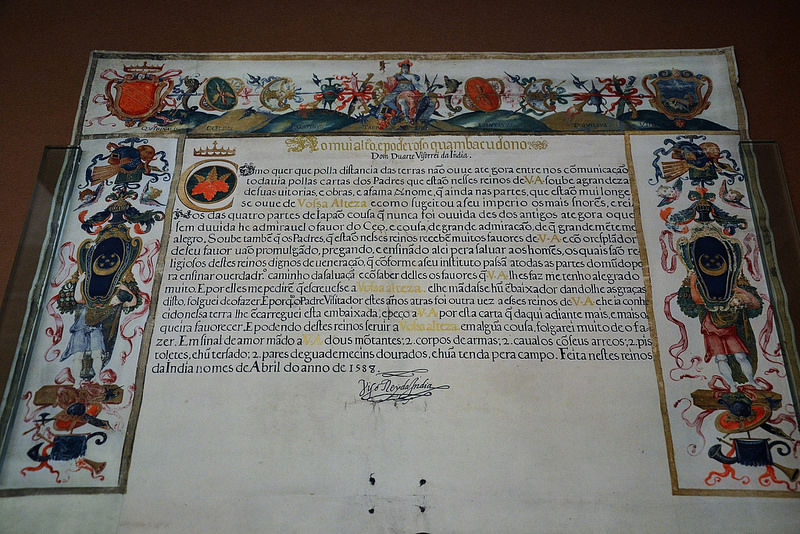 Ao mui alto, e poderoso quambacudono.
Dom Duarte Visorrei da India.
Como quer que polla distancia das terras não ouue ate gora entre nos cõmunicação
todauia pollas cartas dos Padres que estão nesses reinos de V.A. soube a grandeza
de suas uitorias, e obras, e a fama & nome q̃ ainda nas partes, que estão mui longe,
se ouue de Vossa Alteza e como sugeitou a seu imperio os mais snõres, e rei
nos das quatro partes de Iapão cousa q̃ nunca foi ouuida des dos antigos ate gora o que
sem duuida he admirauel o fauor do Ceo, e cousa de grande admiração, de q̃ grandemẽte me
alegro. Soube tambẽ q̃ os Padres, q̃ estão nesses reinos recebẽ muitos fauores de V.A. e cõ o resplãdor
de seu fauor uão promulgãdo, pregando, e ensinãdo a lei pera saluar aos homẽs, os quais são re-
ligiosos destes reinos dignos de ueneração, q̃ cõforme a seu instituto passã a todas as partes do mũdo po
ra ensinar o uerdadrº. caminho da saluaçã e cõ saber delles os fauores q̃ V.A. lhes faz me tenho alegrado
muito. E por elles me pedirẽ q̃ escreuesse a Vossa alteza. e lhe mãdasse hũ ẽbaixador dandolhe as graças
disto, folguei de o fazer. E porq̃ o Padre Visitador estes años atras foi outra uez a esses reinos de V.A. e he ia conhe
cido nessa terra lhe ẽcarreguei esta embaixada, e peço a V.A. por esta carta q̃ daqui adiante mais, e mais o
queira fauorecer. E podendo destes reinos seruir a Vossa alteza em algũa cousa, folgarei muito de o fa
zer. Em sinal de amor mãdo a V.A. dous mõtantes; 2. corpos de armas; 2. caualos cõ seus arreos; 2. pis
toletes, e hũ tersado; 2. pares de guadamecins dourados, e hũa tenda pera campo. Feita nestes reinos
da India no mes de Abril do anno de 1588.
Viso Rey da India